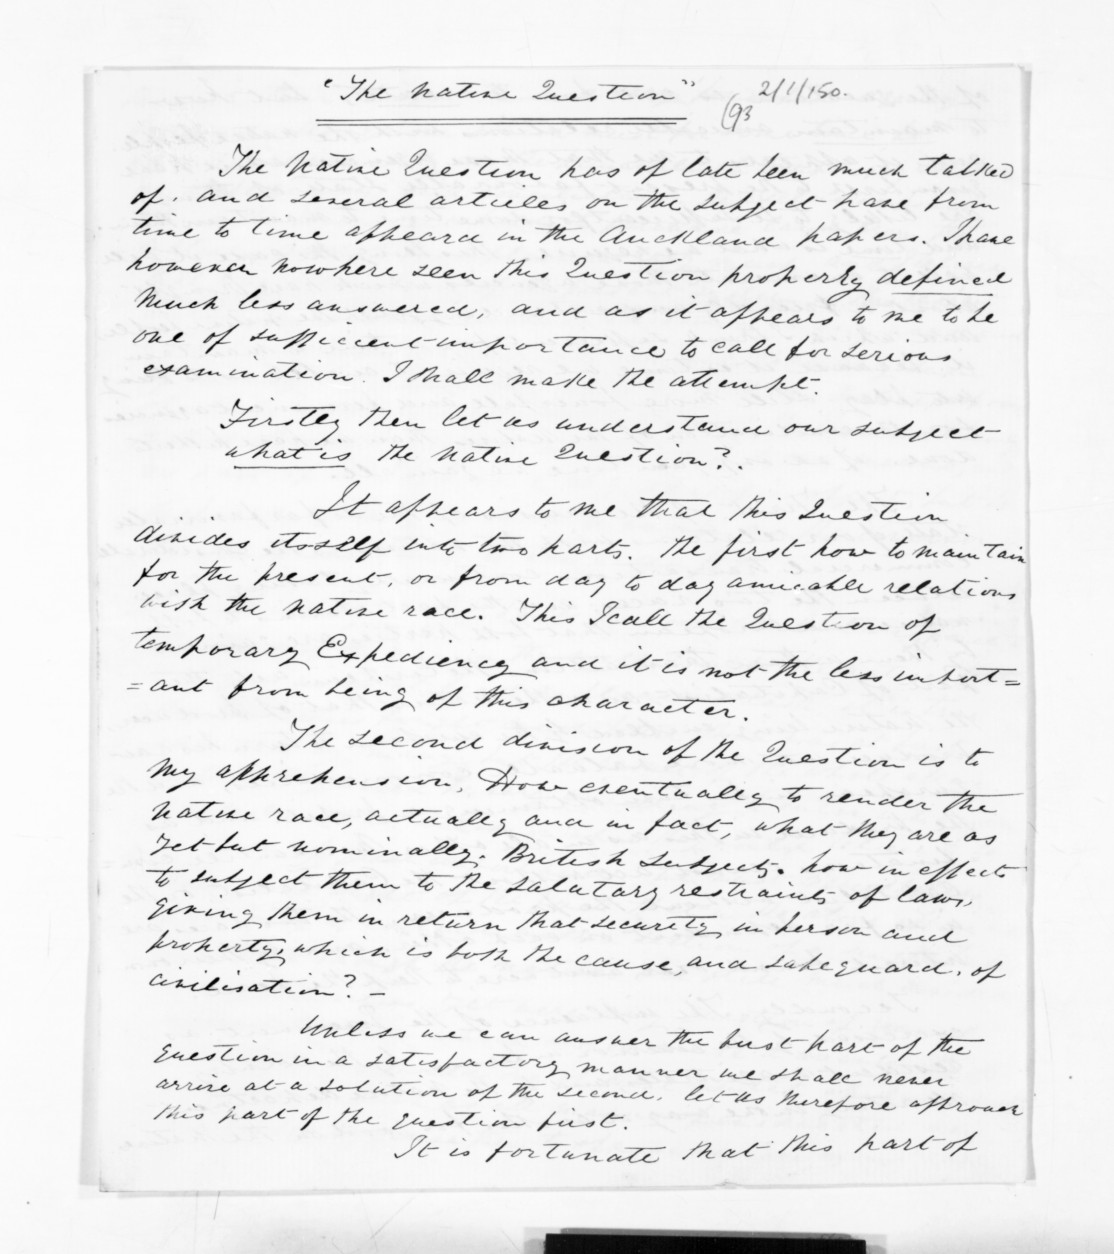 "The Native Question" (93 2/1/150.
The Native Question has of late been much talked
of. and several articles on the subject have from
time to time appeard in the Auckland papers. I have
however nowhere seen this Question properly defined
much less answered, and as it appears to me to be
one of sufficient importance to call for serious
examination. I shall make the attempt.
Firstly then let us understand our subject
what is the Native Question?.
It appears to me that this Question
divides itsself into two parts. the first how to maintain
for the present, or from day to day amicable relations
with the native race. This I call the Question of
temporary Expediency and it is not the less import=
=ant from being of this character.
The second division of the Question is to
my apprehension. How eventually to render the
native race, actually and in fact, what they are as
yet but nominally. British subjects. how in effect
to subject them to the salutary restraints of laws,
giving them in return that security in person and
property, which is both the cause, and safeguard, of
civilisation? –
Unless we can answer the first part of the
question in a satisfactory manner we shall never
arrive at a solution of the second. let us therefore approach
this part of the question first.
It is fortunate that this part of